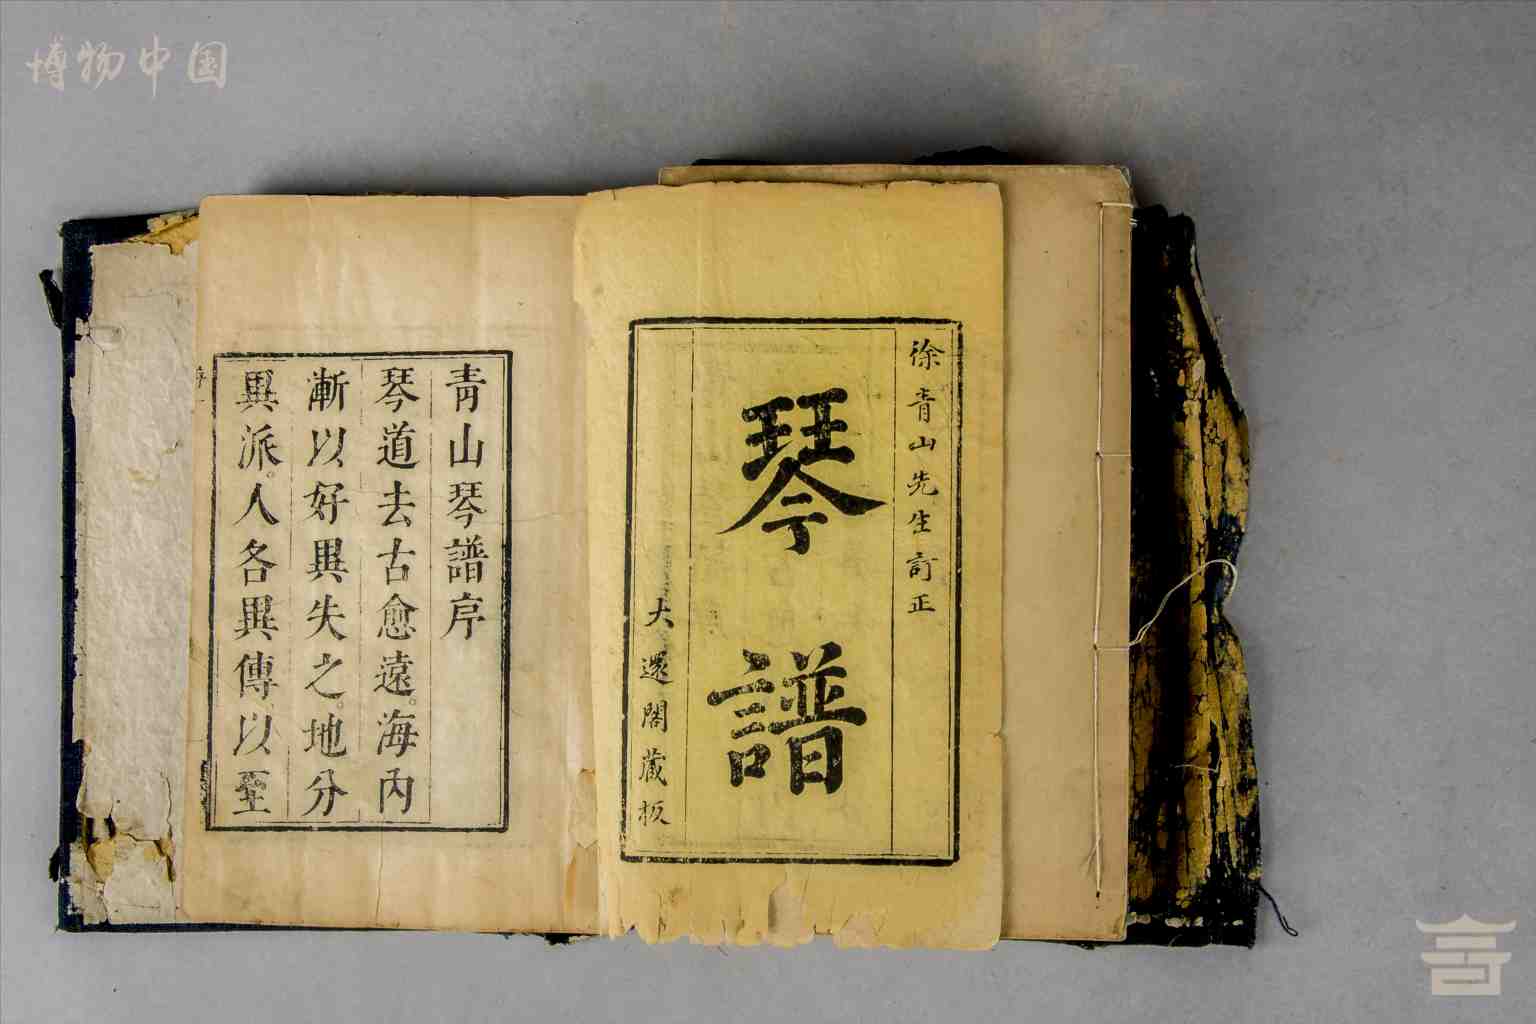 博物中国
徐青山先生訂正
琴譜
大還閣藏板
青山琴譜序
琴道去古愈遠。海內
漸以好異失之。地分
異派。人各異傳、以至